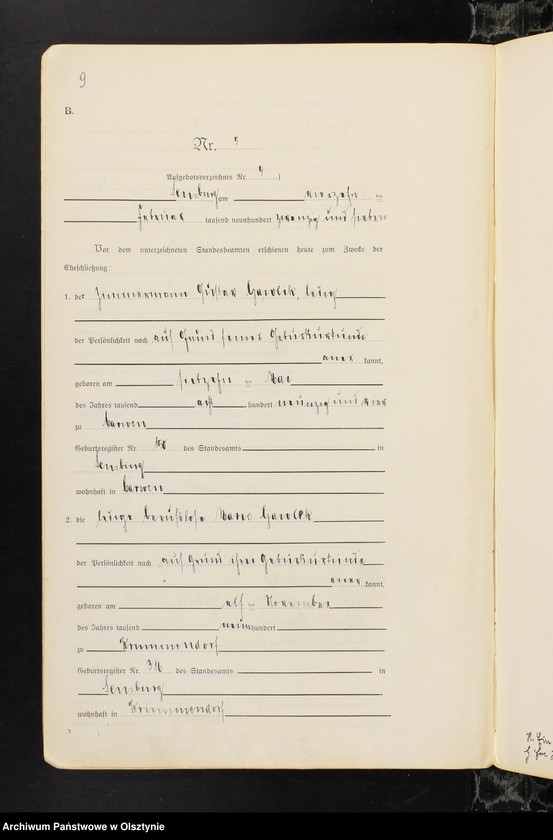 9
B.
Nr. 8
Aufgebotsverzeichnis Nr. 9 )
Sensburg am vierzehn ten
Februar tausend neunhundert zwanzig und sieben
Vor dem unterzeichneten Standesbeamten erschienen heute zum Zwecke der
Eheschließung:
1. der Zimmermann Gustav Gawlek, ledig
der Persönlichkeit nach auf Grund seiner Geburtsurkunde
aner kannt,
geboren am siebzehn ten Mai
des Jahres tausend acht hundert neunzig und vier
zu
Geburtsregister Nr. des Standesamts in
Sensburg
wohnhaft in
2. die ledige berufslose Marie Gawlek
der Persönlichkeit nach auf Grund ihrer Geburtsurkunde
aner kannt,
geboren am elf ten November
des Jahres tausend neun hundert
zu Krummendorf
Geburtsregister Nr. des Standesamts in
Sensburg
wohnhaft in Krummendorf
3
Archiwum Państwowe w Olsztynie